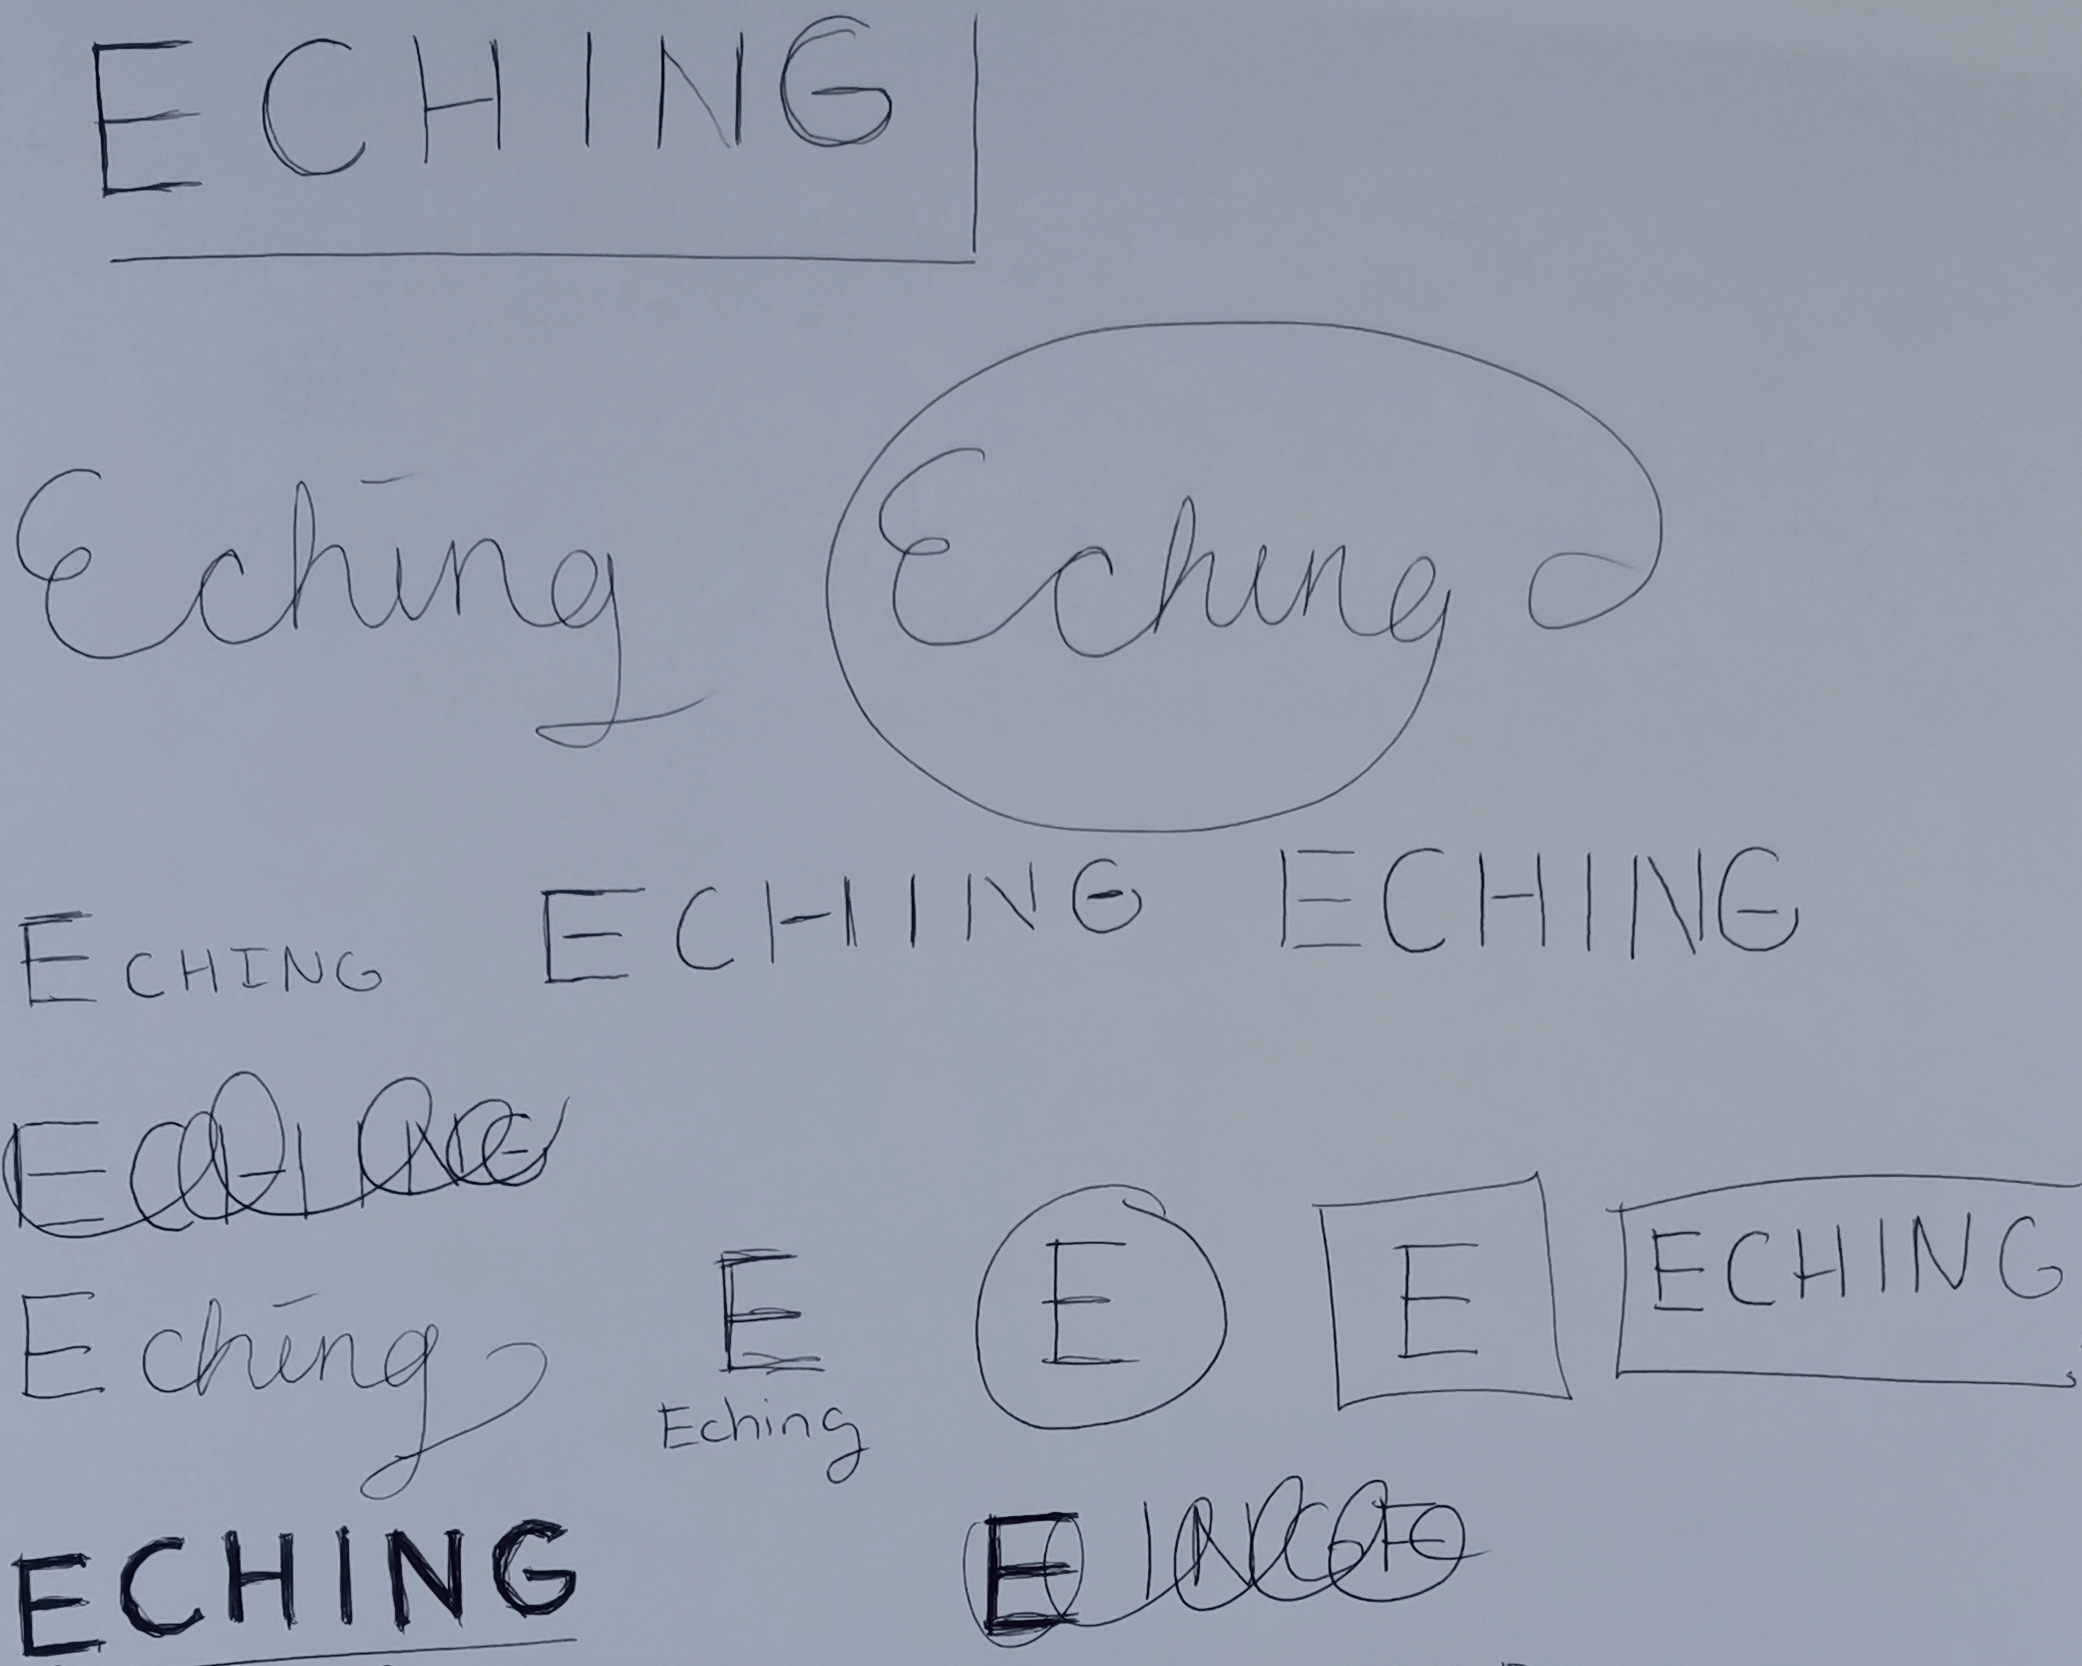 ECHING
Eching Eching
ECHING ECHING ECHING
Eching E E E ECHING
Eching
ECHING E